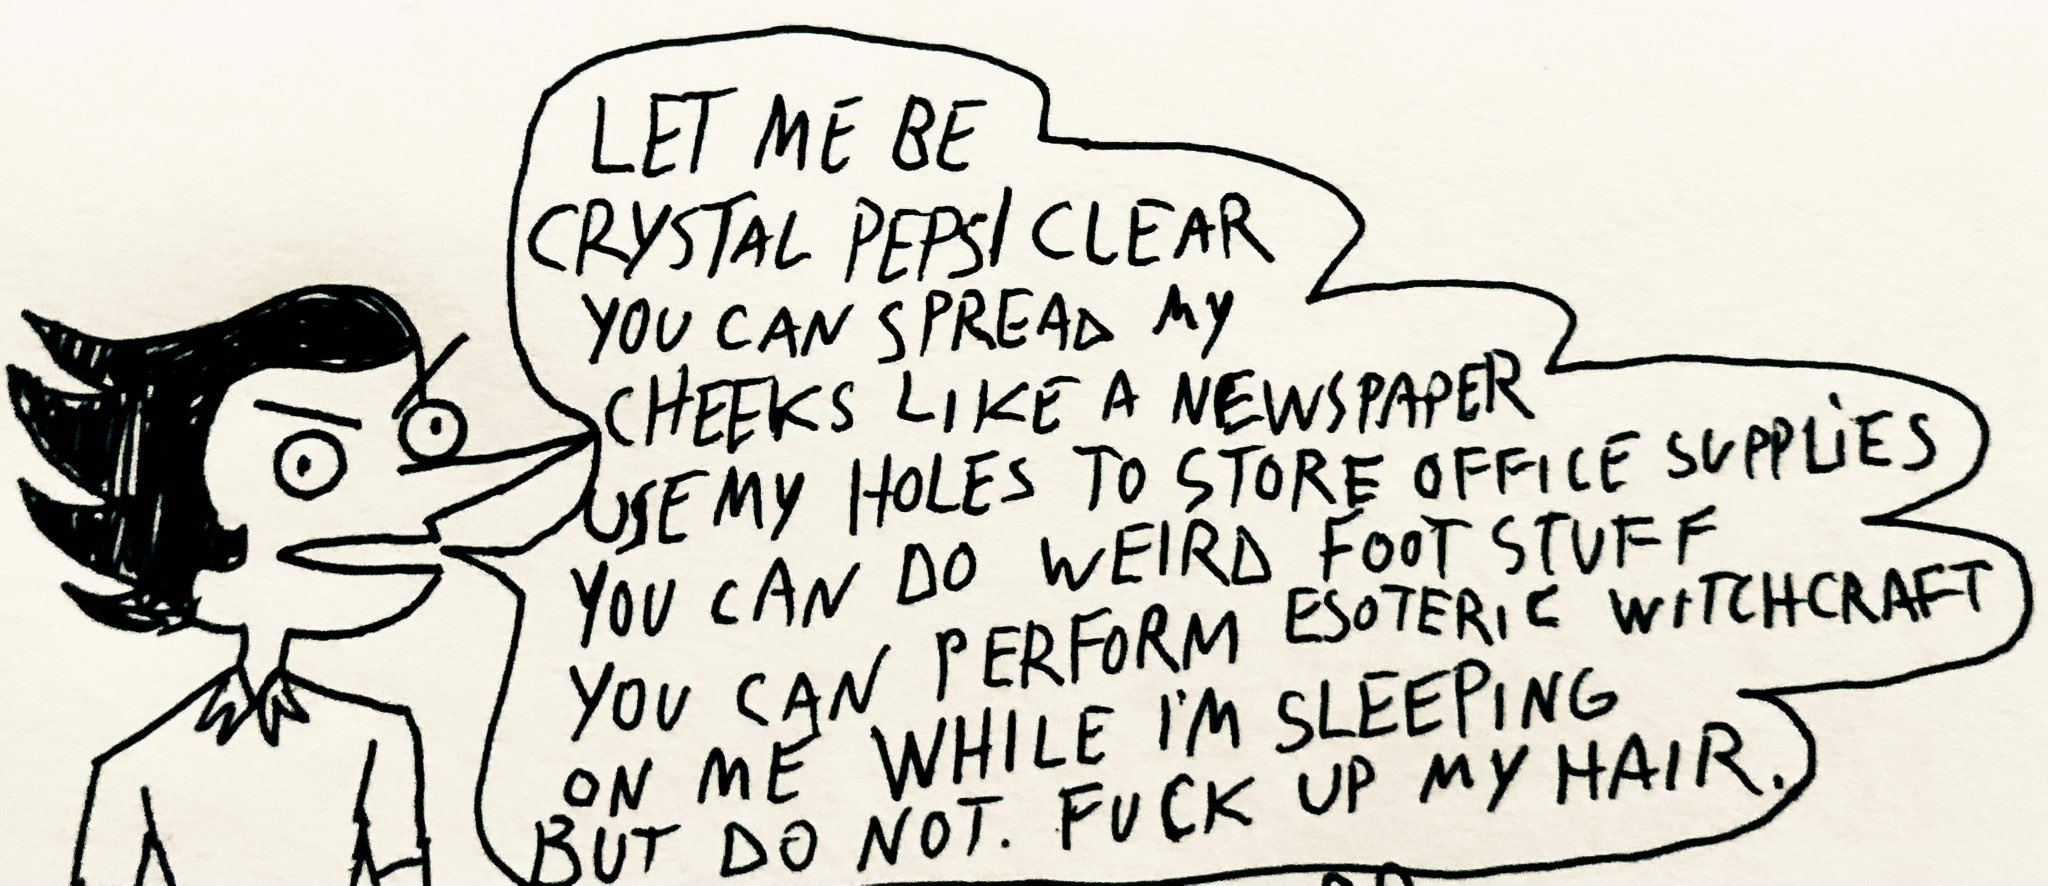 LET ME BE
CRYSTAL PEPSI CLEAR
YOU CAN SPREAD MY
CHEEKS LIKE A NEWSPAPER
USE MY HOLES TO STORE OFFICE SUPPLIES
YOU CAN DO WEIRD FOOT STUFF
YOU CAN PERFORM ESOTERIC WITCHCRAFT
ON ME WHILE I'M SLEEPING
BUT DO NOT. FUCK UP MY HAIR.